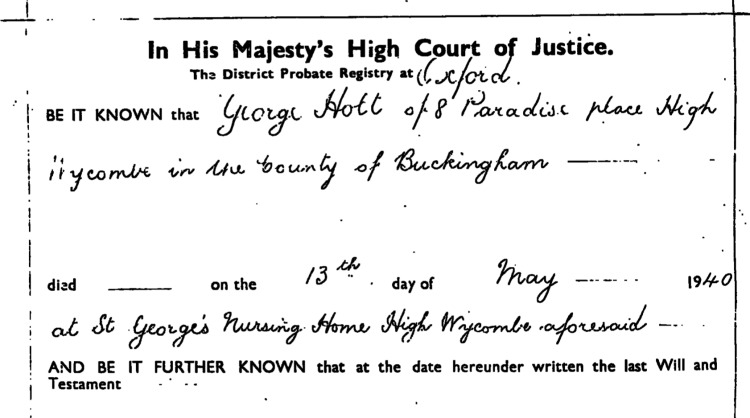 In His Majesty's High Court of Justice.
The District Probate Registry at Oxford.
BE IT KNOWN that George Holt of 8 Paradise place High
Wycombe in the County of Buckingham
died on the 13th day of May 1940
at St George's Nursing Home High Wycombe aforesaid
AND BE IT FURTHER KNOWN that at the date hereunder written the last Will and
Testament